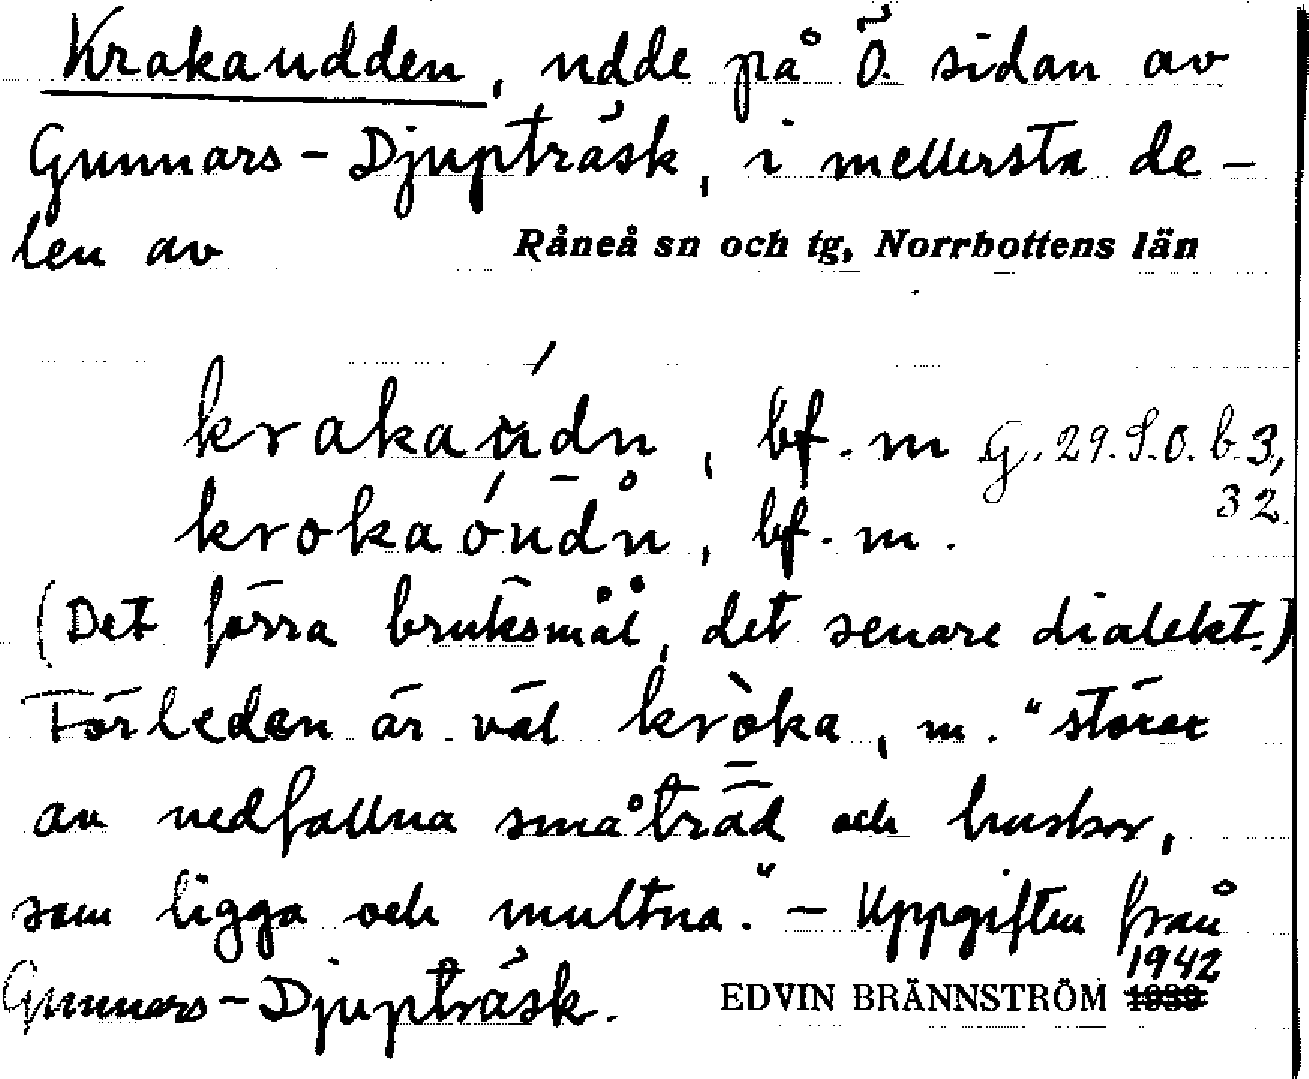 Krakaudden, udde på Ö. sidan av
Gunnars-Djupträsk, i mellersta de-
len av Råneå sn och tg, Norrbottens län
krakaúdn, bf. m G. 29. S.O. b 3,
32
krokaóudn̊, bf. m.
(Det förra bruksmål, det senare dialekt.)
Förleden är väl kròka, m. "störar
av nedfallna småträd och buskar,
som ligga och multna." - Uppgiften från
Gunnars-Djupträsk. EDVIN BRÄNNSTRÖM 1942